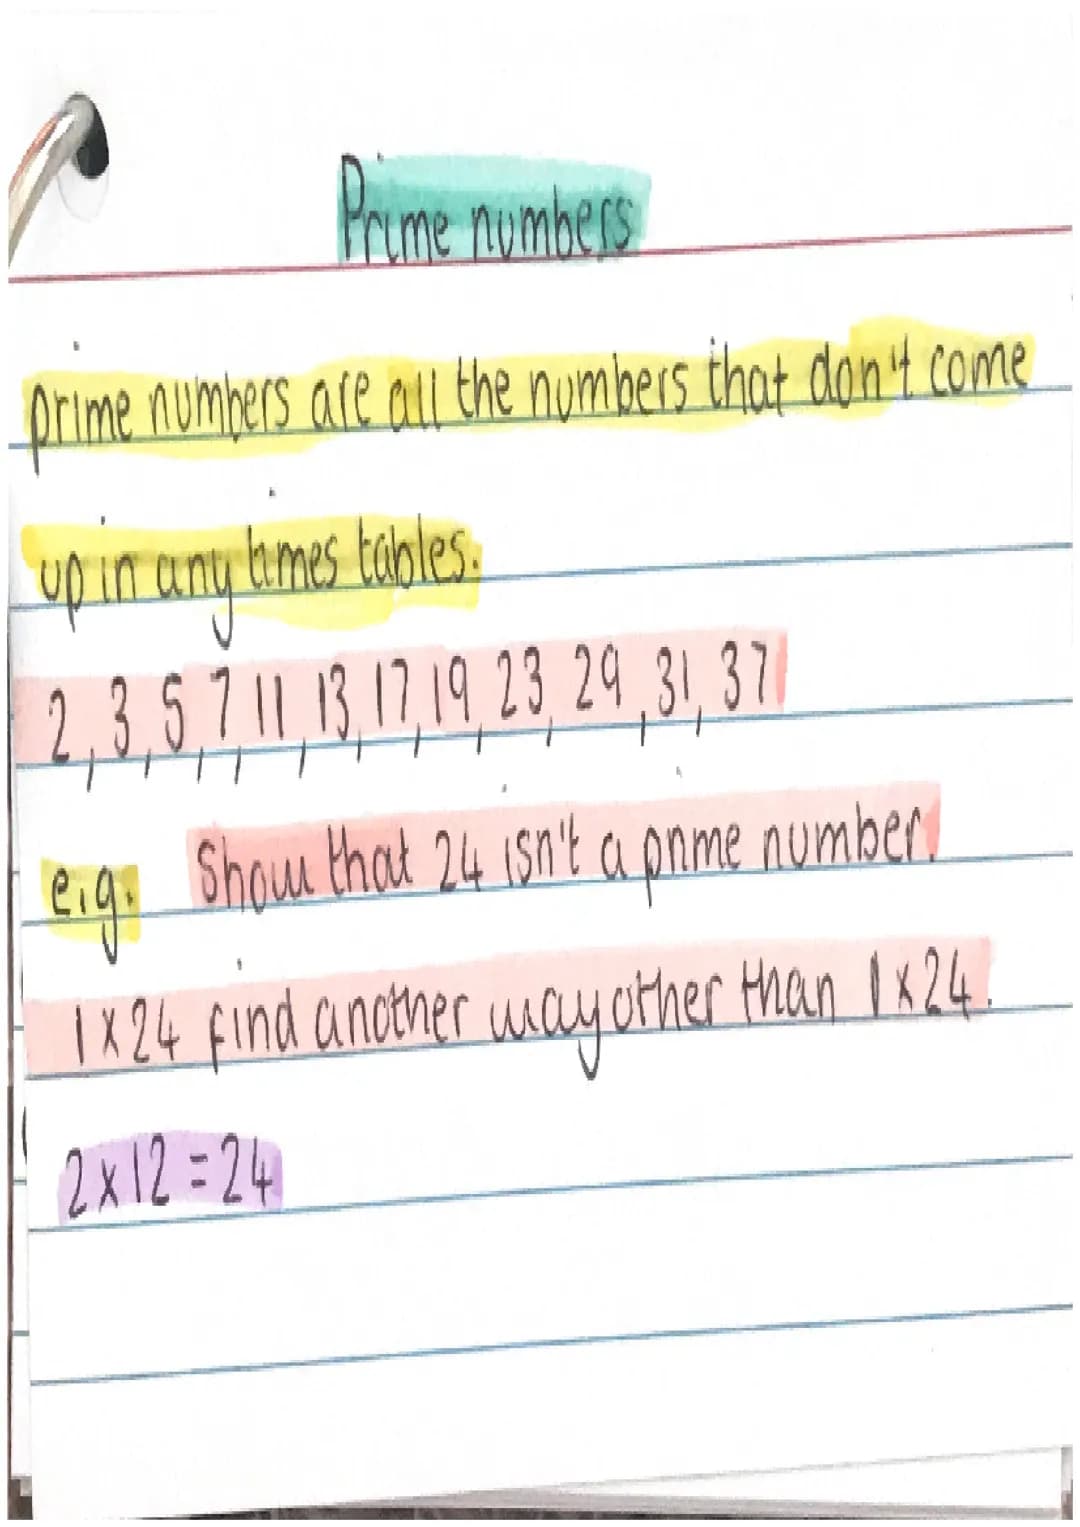 Prime numbers
prime numbers are all the numbers that don't come
up in any times tables.
2, 3, 5, 7, 11, 13, 17, 19, 23, 29, 31, 37
e.g. Show that 24 isn't a prime number.
1 x 24 find another way other than 1 x 24.
2 x 12 = 24